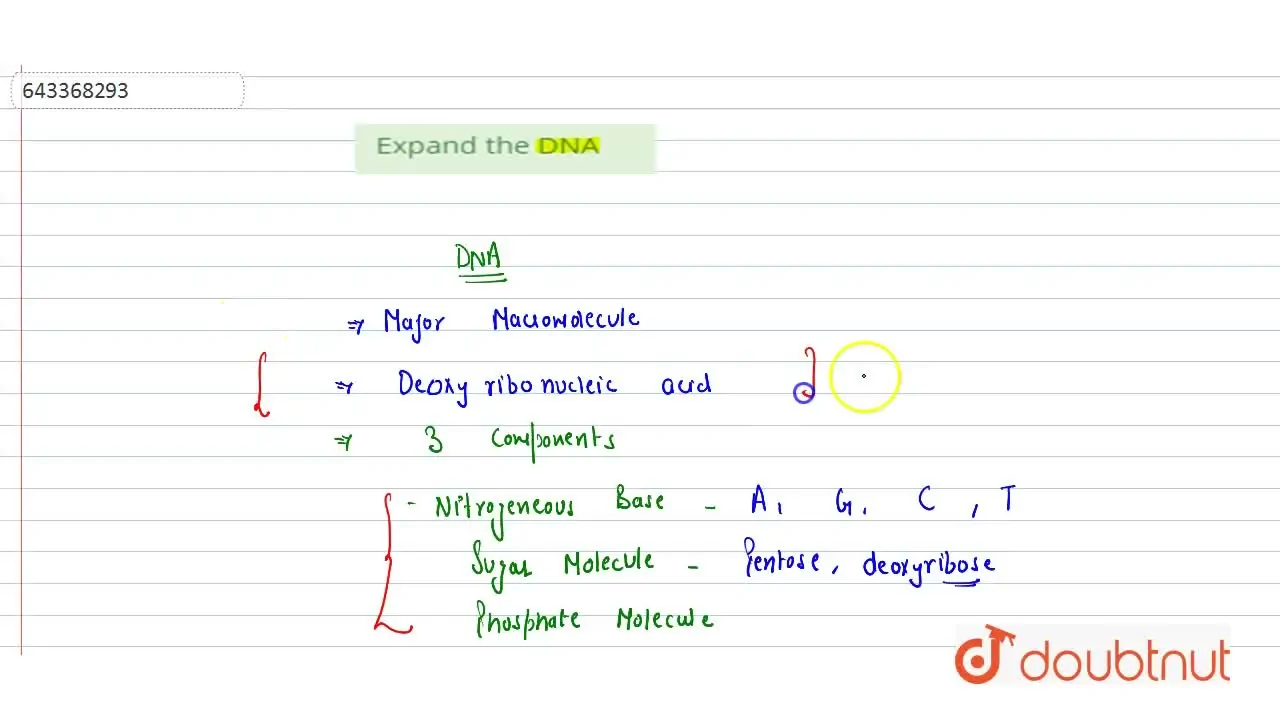 643368293
Expand the DNA
DNA
⇒ Major Macromolecule
⇒ Deoxy ribo nucleic acid
⇒ 3 Components
- Nitrogeneous Base - A, G, C, T
Sugar Molecule - Pentose, deoxyribose
Phosphate Molecule
doubtnut